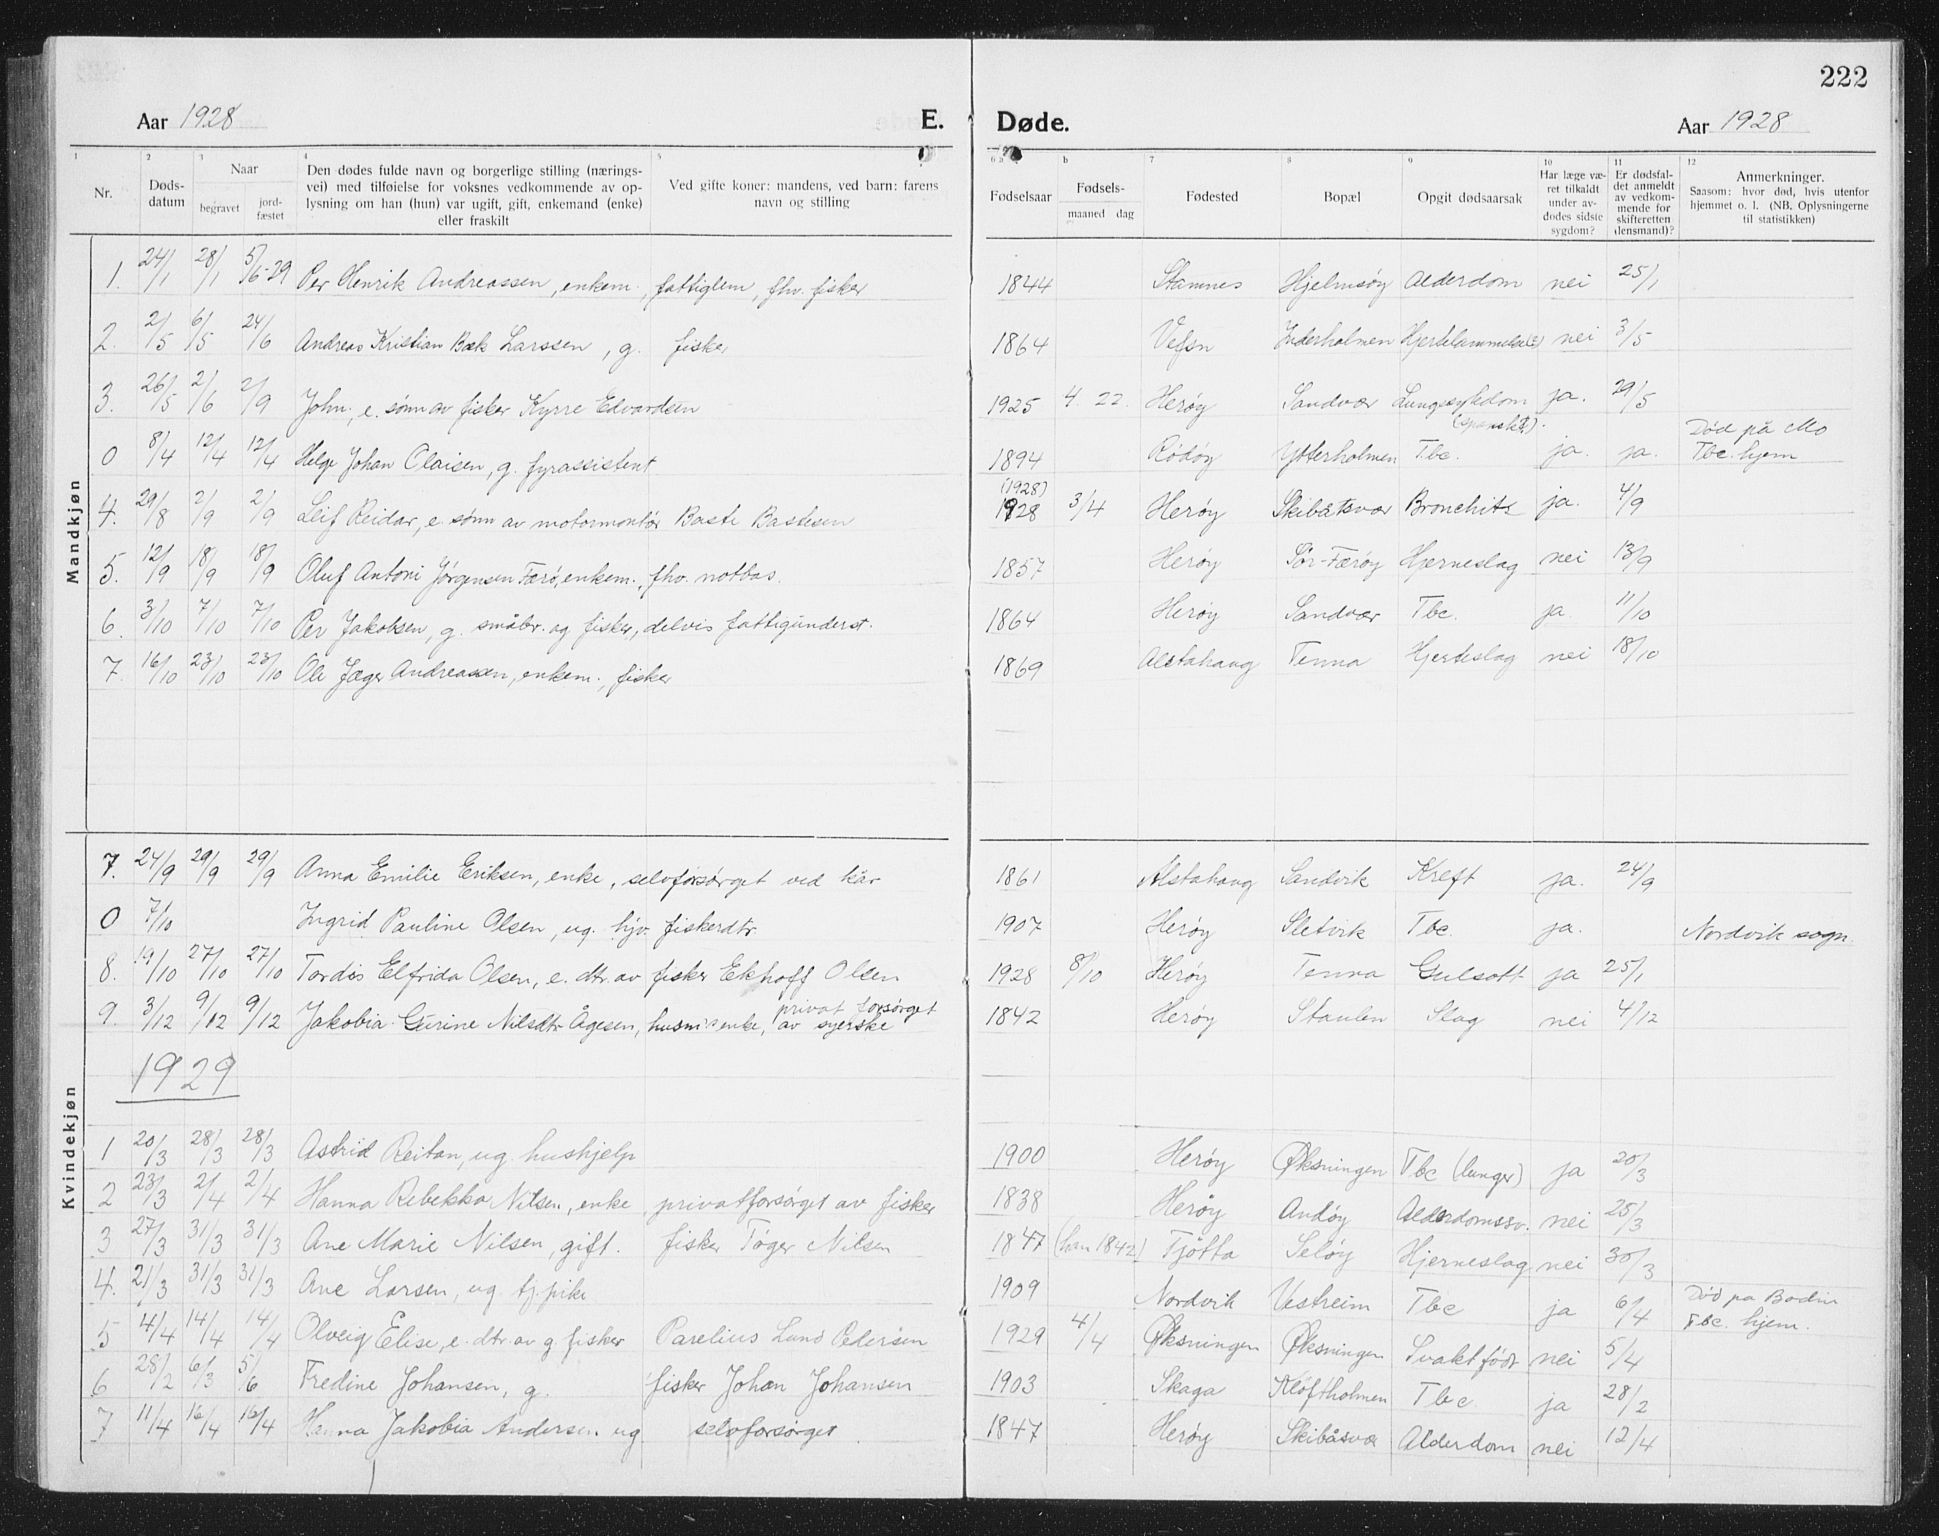 222
Aar 1928 E. Døde. Aar 1928
1 2 3 4 5 6 a b 7 8 9 10 11 12
Nr. Døds-datum Naar begravet jord-fæstet Den dødes fulde navn og borgerlige stilling (nærings-vei) med tilføielse for voksnes vedkommende av op-lysning om han (hun) var ugift, gift, enkemand (enke) eller fraskilt Ved gifte koner: mandens, ved barn: farens navn og stilling Fødselsaar Fødsels- maaned dag Fødested Bopæl Opgit dødsaarsak Har læge væ-ret tilkaldt under av-dødes sidste sygdom? Er dødsfal-det anmeldt av vedkom-mende for skifteretten (lensmand)? Anmerkninger. Saasom: hvor død, hvis utenfor hjemmet o. l. (NB. Oplysningerne til statistikken)
Mandkjøn
1. 24/1 28/1 5/6-29 Per Henrik Andreassen, enkem., fattiglem, fhv. fisker 1844 Stamnes Hjelmsöy Alderdom nei 25/1
2. 2/5 6/5 24/6 Andreas Kristian Bæk Larssen, g. fisker 1864 Vefsn Inderholmen Hjertelammelse(?) nei 3/5
3. 26/5 2/6 2/9 John, e. sønn av fisker Kyrre Edvardsen 1925 4. 22. Herøy Sandvær Lungesykdom (spanske?). ja. 29/5
0 8/4 12/4 12/4 Helge Johan Olaisen, g. fyrassistent 1894 Rödöy Ytterholmen Tbc. ja. ja. Död på Mo Tbc. hjem
4. 29/8 2/9 2/9 Leif Reidar, e. sønn av motormontør Baste Bastesen (1928) 1928 3/4 Herøy Skibåtsvær Bronchitt ja. 4/9
5. 12/9 18/9 18/9 Oluf Antoni Jørgensen Færø, enkem., fhv. notbas. 1857 Herøy Sør-Færøy Hjerneslag nei 13/9
6. 3/10 7/10 7/10 Per Jakobsen, g. småbr. og fisker, delvis fattigunderst. 1864 Herøy Sandvær Tbc. ja. 11/10
7. 16/10 23/10 23/10 Ole Jæger Andreassen, enkem., fisker 1869 Alstahaug Tenna Hjerteslag nei 18/10
Kvindekjøn
7. 24/9 29/9 29/9 Anna Emilie Eriksen, enke, selvforsørget ved kår 1861 Alstahaug Sandvik Kreft ja. 24/9
0 7/10 Ingrid Pauline Olsen, ug. hjv. fiskerdtr 1907 Herøy Sletvik Tbc. ja. Nordvik sogn.
8. 19/10 27/10 27/10 Tordis Elfrida Olsen, e. dtr. av fisker Ekhoff Olsen 1928 8/10 Herøy Tenna Gulsott ja 25/1
9. 3/12 9/12 9/12 Jakobia Gurine Nilsdtr Ågesen, husm. enke, privat forsørget av syerske 1842 Herøy Staulen Slag nei 4/12
1929
1 20/3 28/3 28/3 Astrid Reitan, ug. hushjelp 1900 Herøy Øksningen Tbc (lunger) ja 20/3
2 23/3 2/4 2/4 Hanna Rebekka Nilsen, enke privatforsørget av fisker 1838 Herøy Andøy Alderdomssv. nei 25/3
3 27/3 31/3 31/3 Ane Marie Nilsen, gift. fisker Töger Nilsen 1847 (han 1842) Tjötta Seløy Hjerneslag nei 30/3
4. 21/3 31/3 31/3 Ane Larsen, ug. tj.pike 1909 Nordvik Vestreim Tbc ja 6/4 Död på Bodin Tbc. hjem.
5 4/4 14/4 14/4 Olveig Elise, e. dtr. av g. fisker Parelius Lund Pedersen 1929 4/4 Øksningen Øksningen Svakt født nei 5/4
6 28/2 6/3 5/6 Fredine Johansen, g. fisker Johan Johansen 1903 Skaga Klöftholmen Tbc ja 28/2
7 11/4 16/4 16/4 Hanna Jakobia Andersen ug selvforsørget 1847 Herøy Skibåsvær Alderdom nei 12/4